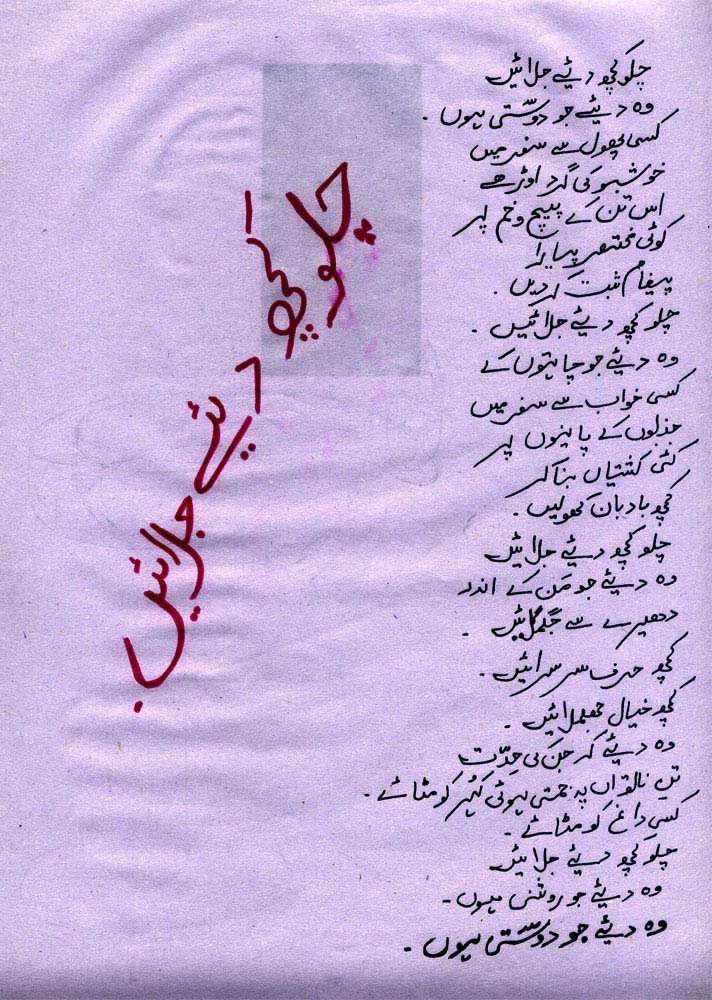 چلو کچھ دیئے جلائیں
چلو کچھ دیئے جلائیں
وہ دیئے جو دوستی ہوں ۔
کسی پھول سے سفر میں
خوشبو کی گرد اوڑھے
اس تن کے پیچ و خم پر
کوئی مختصر پیارا
پیغام ثبت کر دیں ۔
چلو کچھ دیئے جلائیں ۔
وہ دیئے جو چاہتوں کے
کسی خواب سے سفر میں
جذبوں کے پانیوں پر
کئی کشتیاں بنا کر
کچھ بادبان کھولیں ۔
چلو کچھ دیئے جلائیں
وہ دیئے جو مَن کے اندر
دھیرے سے جگمگائیں ۔
کچھ حرف سرسرائیں ۔
کچھ خیال جھلملائیں ۔
وہ دیئے کہ جن کی حِدّت
تنِ ناتواں پہ جمتی ہوئی کُہر کو مٹائے ۔
کسی داغ کو مٹائے ۔
چلو کچھ دیئے جلائیں
وہ دیئے جو روشنی ہوں ۔
وہ دیئے جو دوستی ہوں ۔